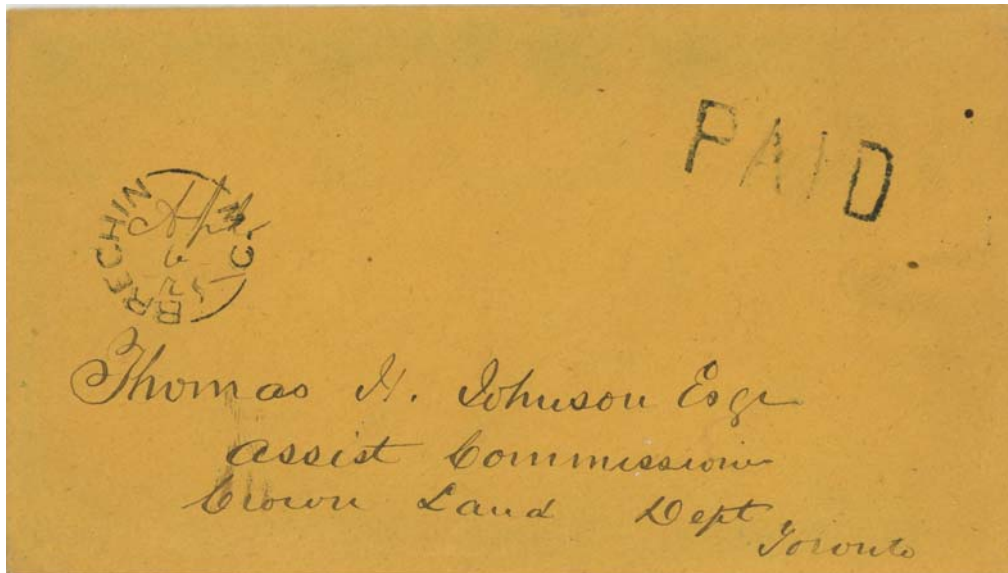 PAID
BRECHIN C.W.
Apl
6
Thomas H. Johnson Esqr
Assist Commissioner
Crown Land Dept
Toronto